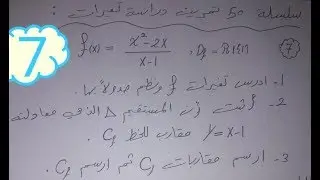 سلسلة 50 تمرين دراسة تغيرات :
7
⑦ f(x) = x²-2x / x-1 , Df = ℝ\{1}
1- ادرس تغيرات f ونظم جدولاً بها.
2- أثبت أن المستقيم Δ الذي معادلته
y = x-1 مقارب للخط Cf .
3- ارسم مقاربات Cf ثم ارسم Cf